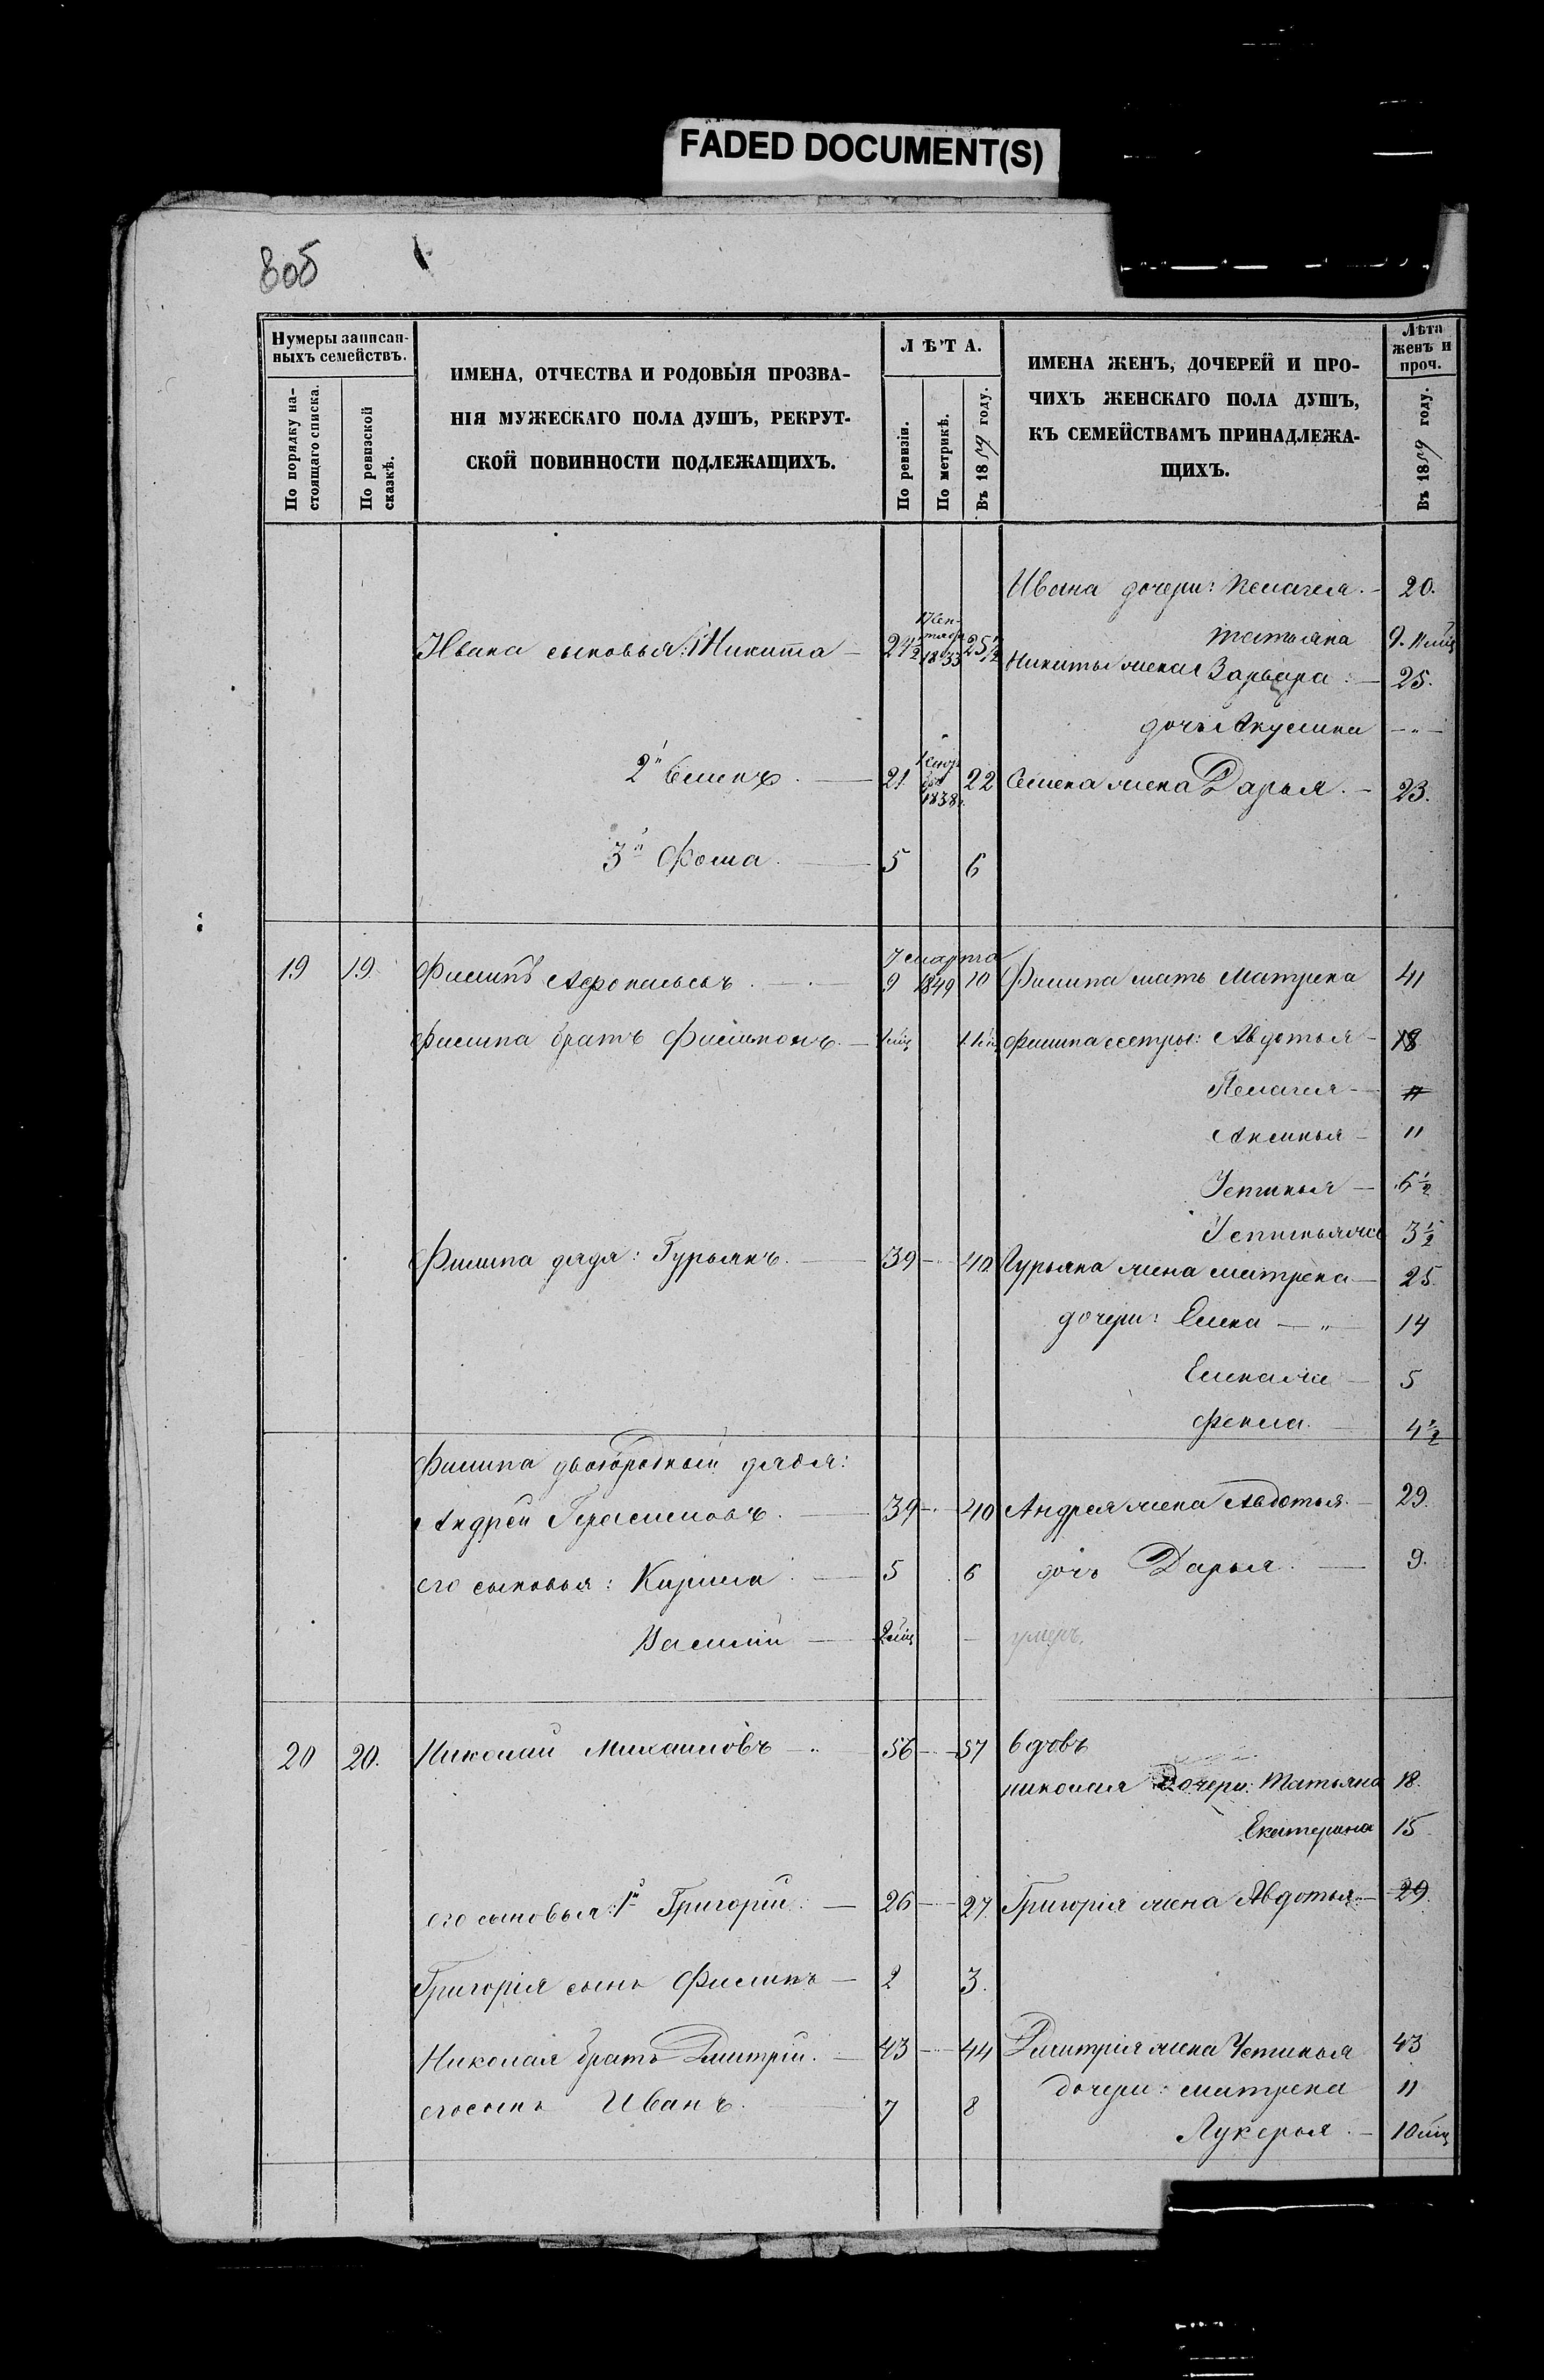 FADED DOCUMENT(S)
806
Нумеры записан-
ныхъ семействъ.
По порядку на-
стоящаго списка.
По ревизской
сказкѣ.
ИМЕНА, ОТЧЕСТВА И РОДОВЫЯ ПРОЗВА-
НІЯ МУЖЕСКАГО ПОЛА ДУШЪ, РЕКРУТ-
СКОЙ ПОВИННОСТИ ПОДЛЕЖАЩИХЪ.
ЛѢТА.
По ревизіи.
По метрикѣ.
Въ 1859 году.
ИМЕНА ЖЕНЪ, ДОЧЕРЕЙ И ПРО-
ЧИХЪ ЖЕНСКАГО ПОЛА ДУШЪ,
КЪ СЕМЕЙСТВАМЪ ПРИНАДЛЕЖА-
ЩИХЪ.
Лѣта
женъ и
проч.
Въ 1859 году.
Ивана дочери: Пелагея. 20.
Татьяна 9.
Ивана сыновья: 1й Никита 24½ 1833 25½
Никиты жена Варвара: 25.
дочь Акулина — " —
2й Семенъ. 21 1838 22 Семена жена Дарья. 23.
3й Фома. 5 6
19 19. Филипъ Афонасьевъ 9 7 марта 1849 10 Филипа мать Матрена 41
Филипа братъ Филимонъ Филипа сестры: Авдотья 18
Пелагея
Аксинья 11
Устинья 6½
Устинья же 3½
Филипа дядя: Гурьянъ. 39 40 Гурьяна жена Матрена 25.
дочери: Елена — " — 14
Елена же 5
Фекла. 4½
Филипа двоюродный дядя:
Андрей Герасимовъ. 39 40 Андрея жена Авдотья. 29.
его сыновья: Кирила 5 6 дочь Дарья. 9.
Василий 2 мѣц — умеръ.
20 20. Николай Михаиловъ 56 57 вдовъ
Николая Дочери: Татьяна 18.
Екатерина 15
его сыновья: 1й Григорій. 26 27 Григорія жена Авдотья. 29.
Григорія сынъ Филипъ 2 3.
Николая братъ Дмитрій. 43 44 Дмитрія жена Устинья 43
дочери: Матрена 11
его сынъ Иванъ. 7 8
Лукерья. 10 мѣц